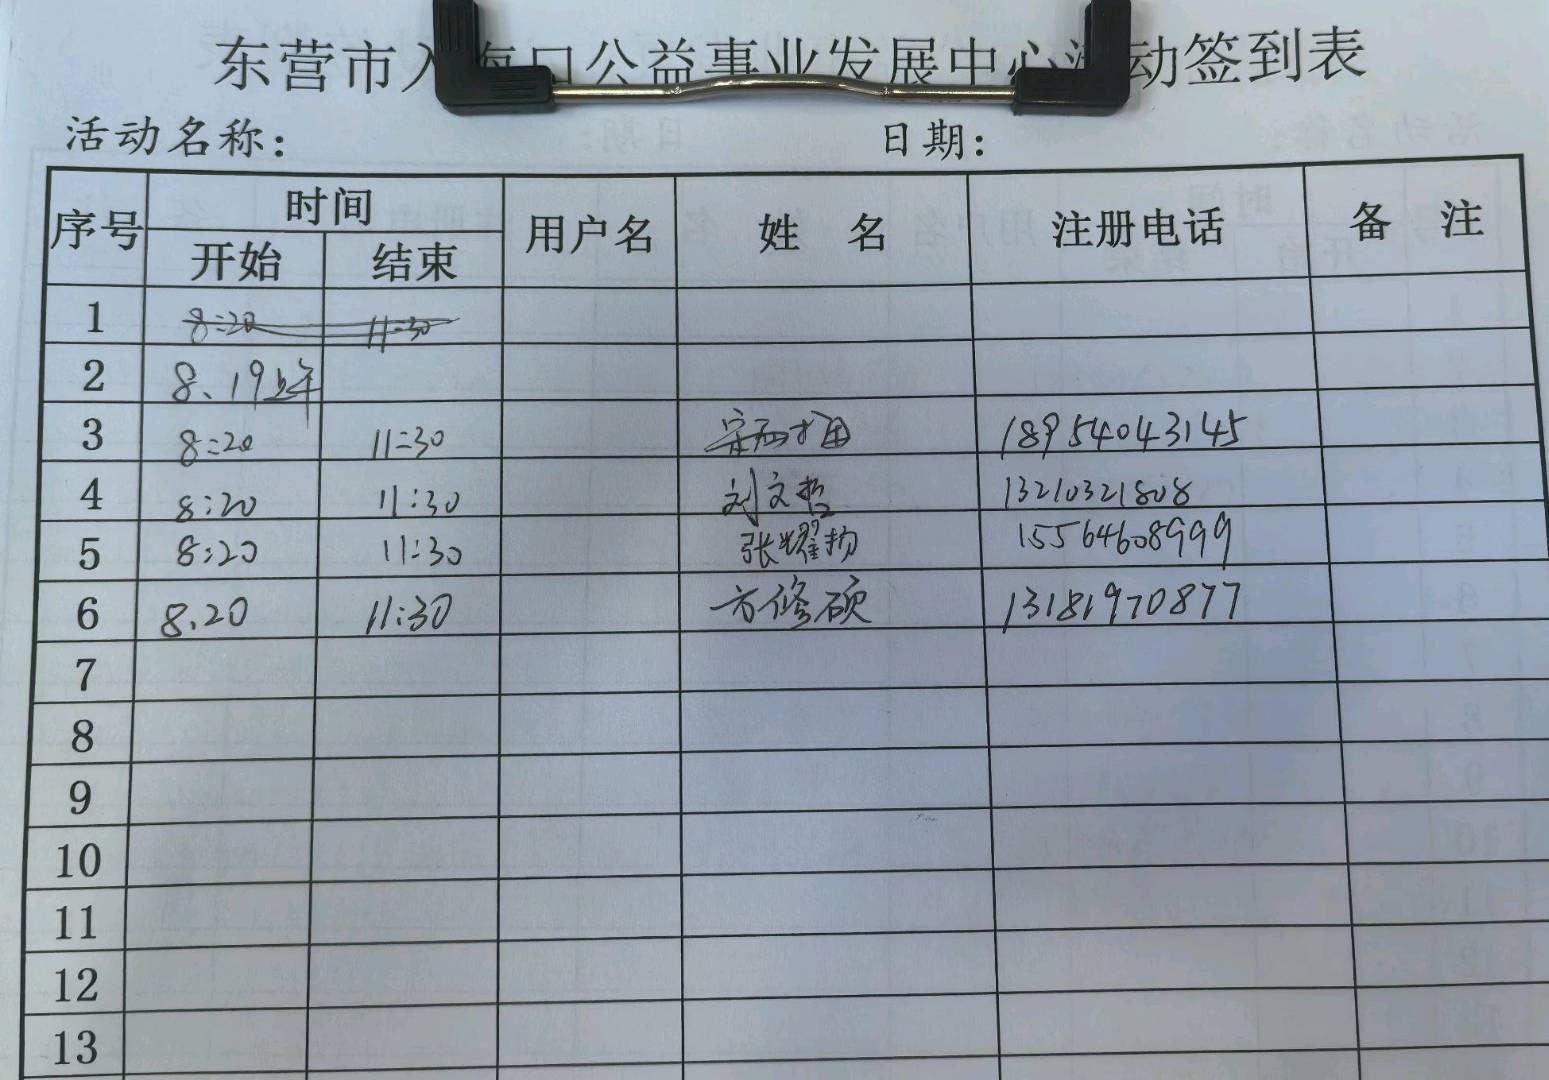 东营市入海口公益事业发展中心活动签到表
活动名称: 日期:
序号 时间 用户名 姓 名 注册电话 备 注
开始 结束
1 8:20 11:30
2 8、19上午
3 8:20 11:30 18954043145
4 8:20 11:30 刘文哲 13210321808
5 8:20 11:30 张耀扬 15564608999
6 8.20 11:30 方修硕 13181970877
7
8
9
10
11
12
13